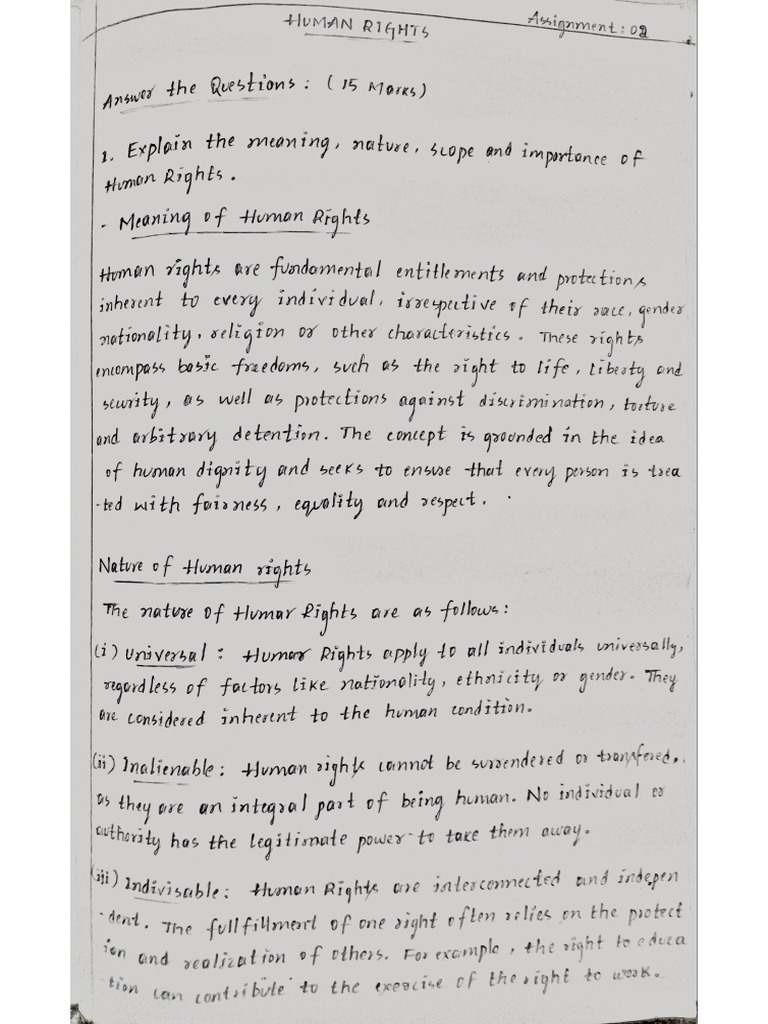 HUMAN RIGHTS
Assignment: 02
Answer the Questions: (15 Marks)
1. Explain the meaning, nature, scope and importance of
Human Rights.
- Meaning of Human Rights
Human rights are fundamental entitlements and protections
inherent to every individual, irrespective of their race, gender
nationality, religion or other characteristics. These rights
encompass basic freedoms, such as the right to life, liberty and
security, as well as protections against discrimination, torture
and arbitrary detention. The concept is grounded in the idea
of human dignity and seeks to ensure that every person is trea
-ted with fairness, equality and respect.
Nature of Human rights
The nature of Human Rights are as follows:
(i) Universal: Human Rights apply to all individuals universally,
regardless of factors like nationality, ethnicity or gender. They
are considered inherent to the human condition.
(ii) Inalienable: Human rights cannot be surrendered or transfered,
as they are an integral part of being human. No individual or
authority has the legitimate power to take them away.
(iii) Indivisable: Human Rights are interconnected and indepen
-dent. The fullfillment of one right often relies on the protect
ion and realization of others. For example, the right to educa
-tion can contribute to the exercise of the right to work.